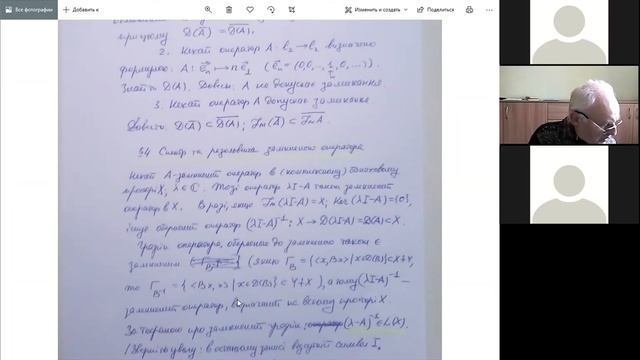 Все фотографии
Добавить к
Изменить и создать
Поделиться
при цьому D(A̅) = D(A)̅.
2. Нехай оператор A: l₂→l₂ визначено
формулою: A: e⃗ₙ ↦ n e⃗₁ (e⃗ₙ = (0,0,..,1,0,...)).
n
Знайти D(A). Довести: A не допускає замикання.
3. Нехай оператор A допускає замикання
Довести: D(A̅) ⊂ D(A)̅; Im(A̅) ⊂ Im A̅.
§4 Спектр та резольвента замкненого оператора
Нехай A-замкнений оператор в (комплексному) банаховому
просторі X, λ∈ℂ. Тоді оператор λI-A також замкнений
оператор в X. В разі, якщо Im(λI-A)=X; Ker(λI-A)={0},
існує обернений оператор (λI-A)⁻¹: X→D(λI-A)=D(A)⊂X.
Графік оператора, оберненого до замкненого також є
замкненим (якщо Γ_B = {<x,Bx> | x∈D(B)}⊂X+Y,
то Γ_B⁻¹ = {<Bx,x> | x∈D(B)} ⊂ Y+X), а тому (λI-A)⁻¹ –
замкнений оператор, визначений на всьому просторі X.
За теоремою про замкнений графік: (λ-A)⁻¹∈L(X).
/Зверніть увагу: в останньому записі відсутній символ I.